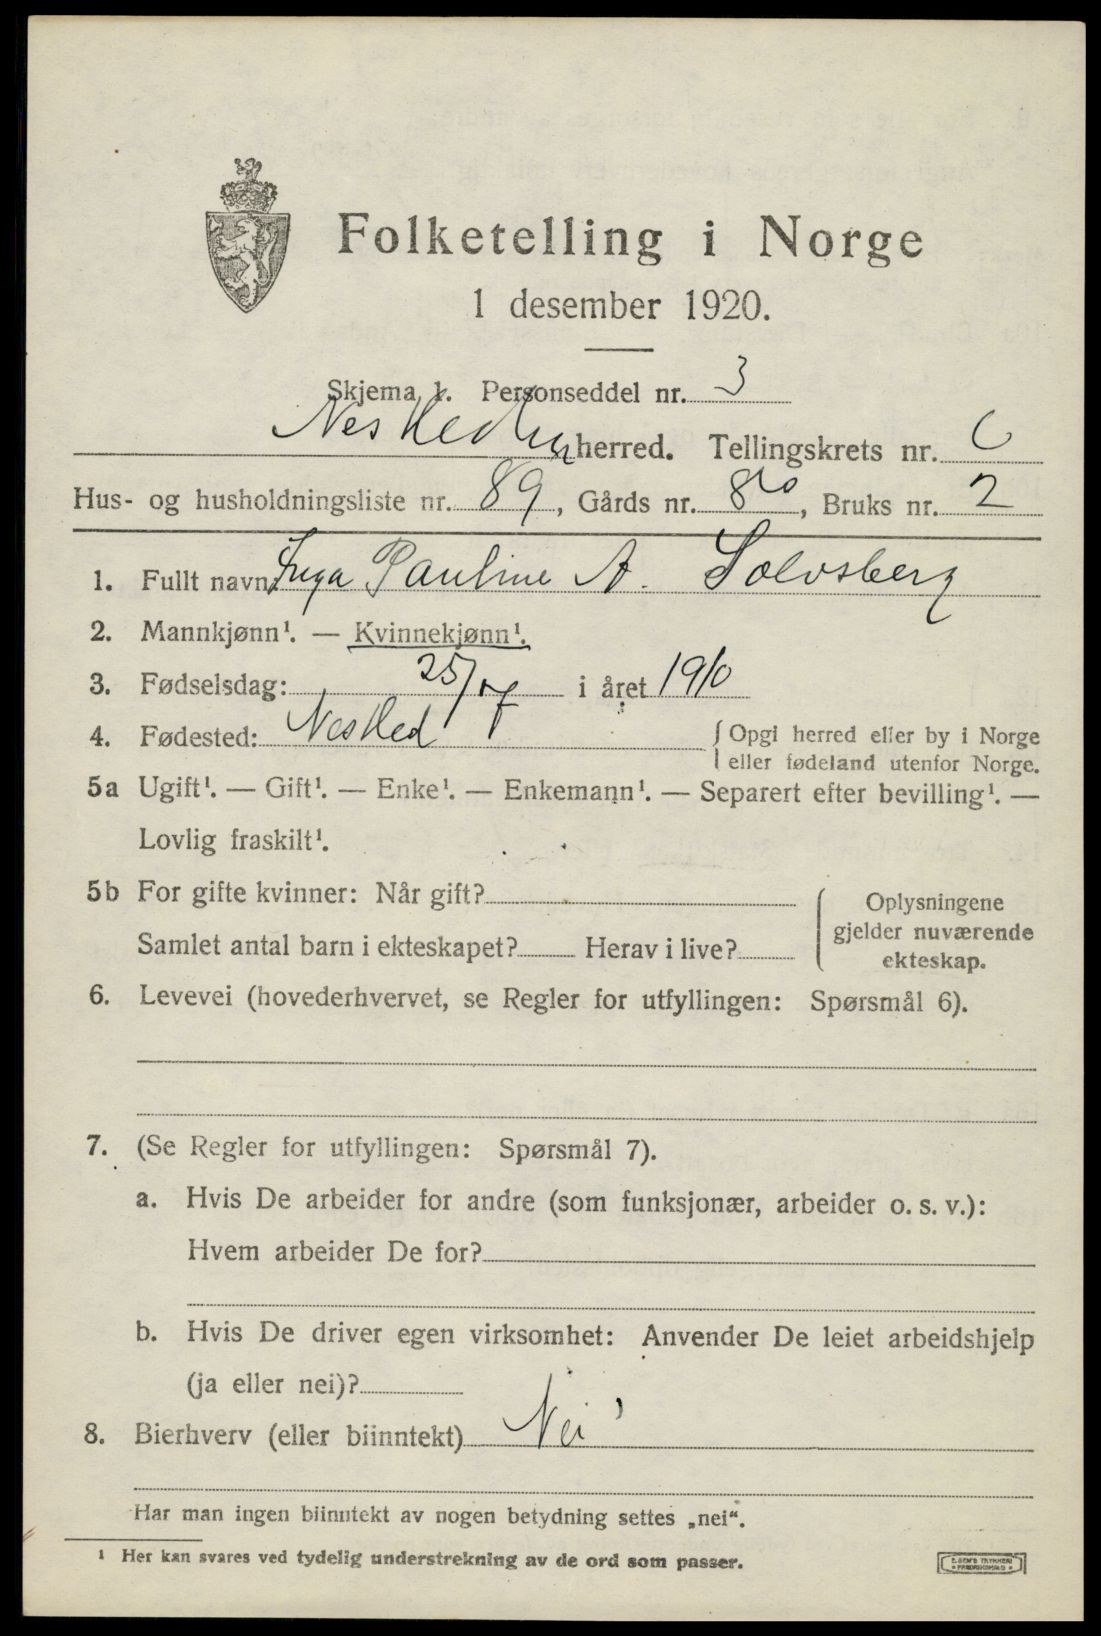 Folketelling i Norge
1 desember 1920.
Skjema 1. Personseddel nr. 3
Nes Hedm herred. Tellingskrets nr. 6
Hus- og husholdningsliste nr. 89, Gårds nr. 80, Bruks nr. 2
1. Fullt navn Inga Pauline A. Solvsberg
2. Mannkjønn¹. — Kvinnekjønn¹.
3. Fødselsdag: 25/7 i året 1910
4. Fødested: Nes Hed { Opgi herred eller by i Norge
eller fødeland utenfor Norge.
5a Ugift¹. — Gift¹. — Enke¹. — Enkemann¹. — Separert efter bevilling¹. —
Lovlig fraskilt¹.
5b For gifte kvinner: Når gift?
Samlet antal barn i ekteskapet? Herav i live?
{ Oplysningene
gjelder nuværende
ekteskap.
6. Levevei (hovederhvervet, se Regler for utfyllingen: Spørsmål 6).
7. (Se Regler for utfyllingen: Spørsmål 7).
a. Hvis De arbeider for andre (som funksjonær, arbeider o. s. v.):
Hvem arbeider De for?
b. Hvis De driver egen virksomhet: Anvender De leiet arbeidshjelp
(ja eller nei)?
8. Bierhverv (eller biinntekt) Nei
Har man ingen biinntekt av nogen betydning settes „nei“.
¹ Her kan svares ved tydelig understrekning av de ord som passer.